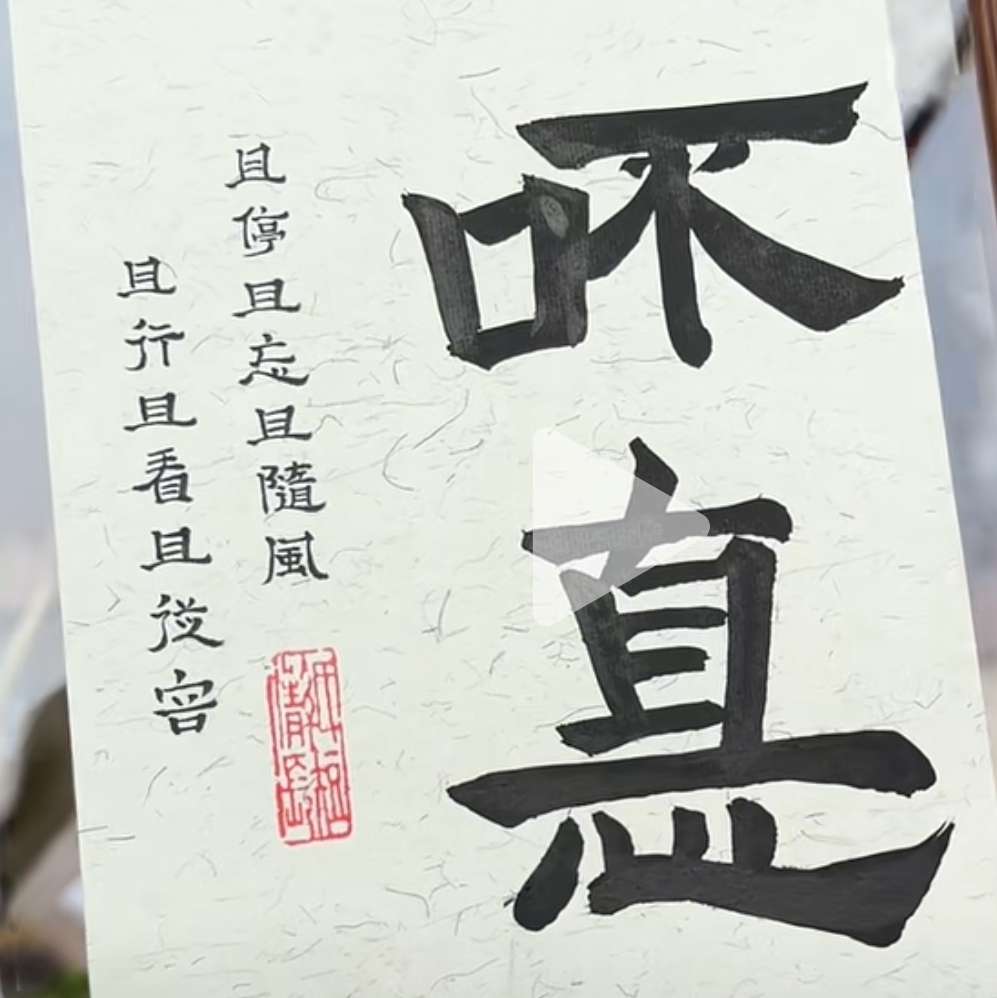 吥惪
且停且忘且隨風
且行且看且從容